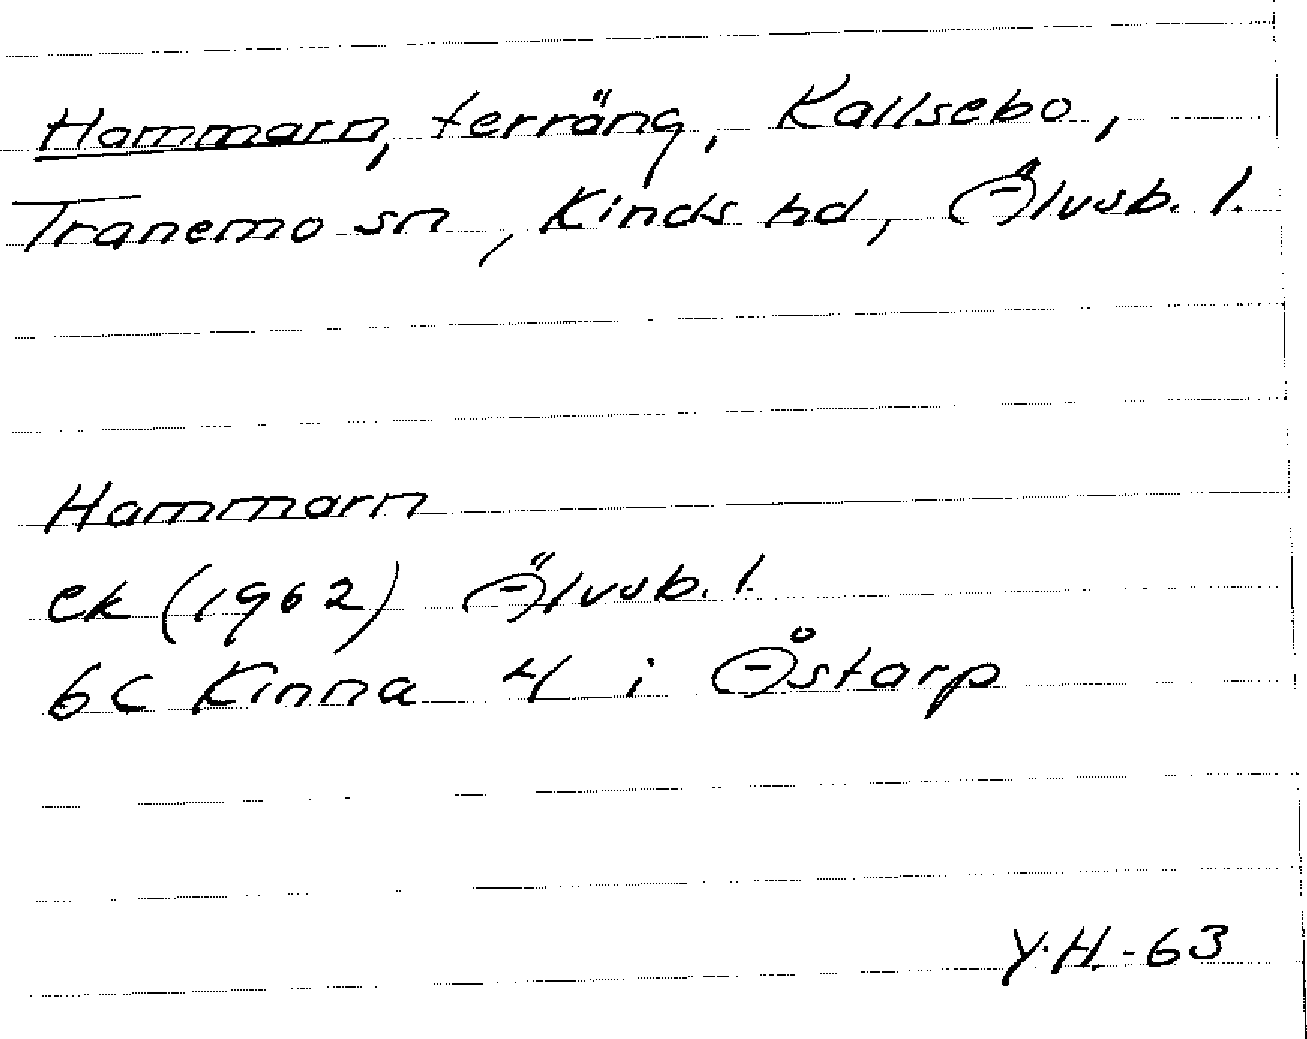 Hammarn, terräng, Kallsebo,
Tranemo sn, Kinds hd, Älvsb. l.
Hammarn
ek (1962) Älvsb. l.
6C Kinna 4 i Åstarp
Y.H.-63